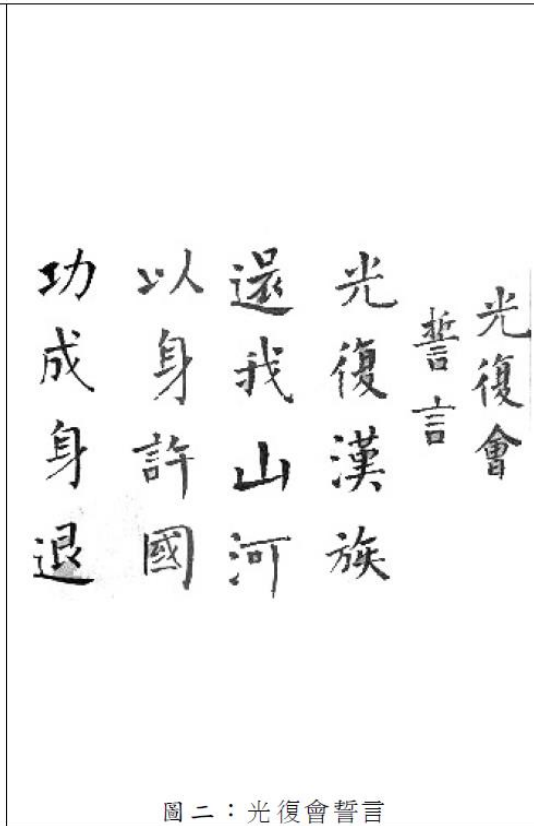 光復會
誓言
光復漢族
還我山河
以身許國
功成身退
圖二：光復會誓言